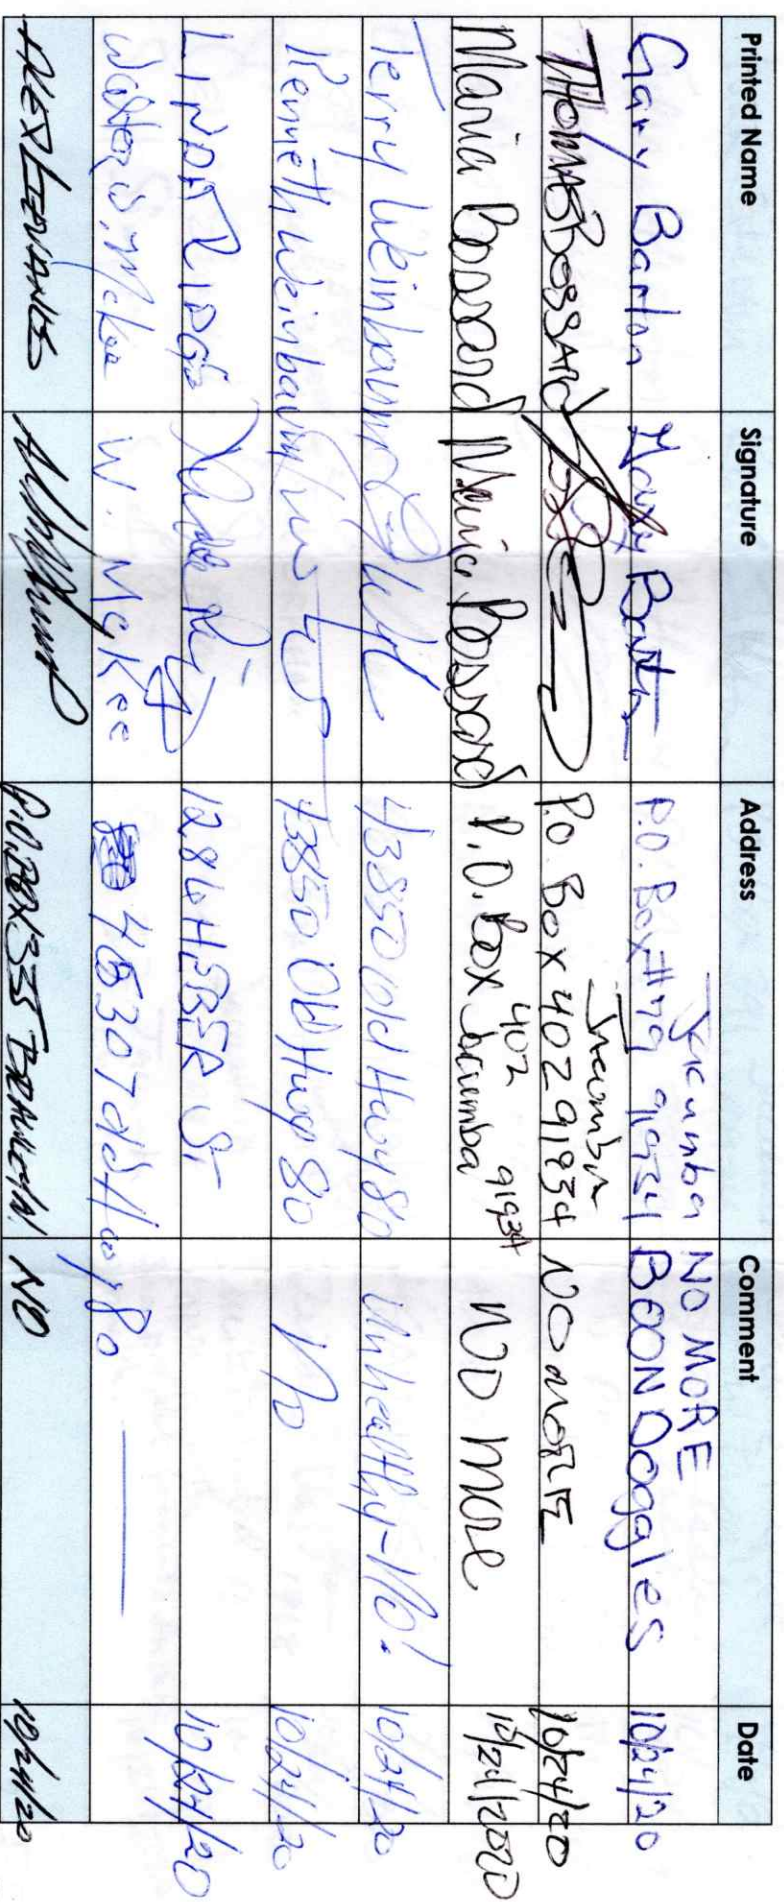 Printed Name Signature Address Comment Date
Gary Barton Gary Barton P.O. Box #79 91934 Jacumba NO MORE BOONDOGGlES 10/24/20
THOMAS BOSSARD P.O. BOX 402 91934 Jacumba NO MORE 10/24/20
Maria Bossard Maria Bossard P.O. Box 402 Jacumba 91934 NO More 10/24/2020
Terry Weinbaum 43850 Old Hwy 80 Unhealthy-No! 10/24/20
Kenneth Weinbaum 43850 Old Hwy 80 No 10/24/20
LINDA RIDGE 1286 HEBER St 10/24/20
McKee W. McKee Old Hwy 80
P.O. BOX 335 NO 10/24/20